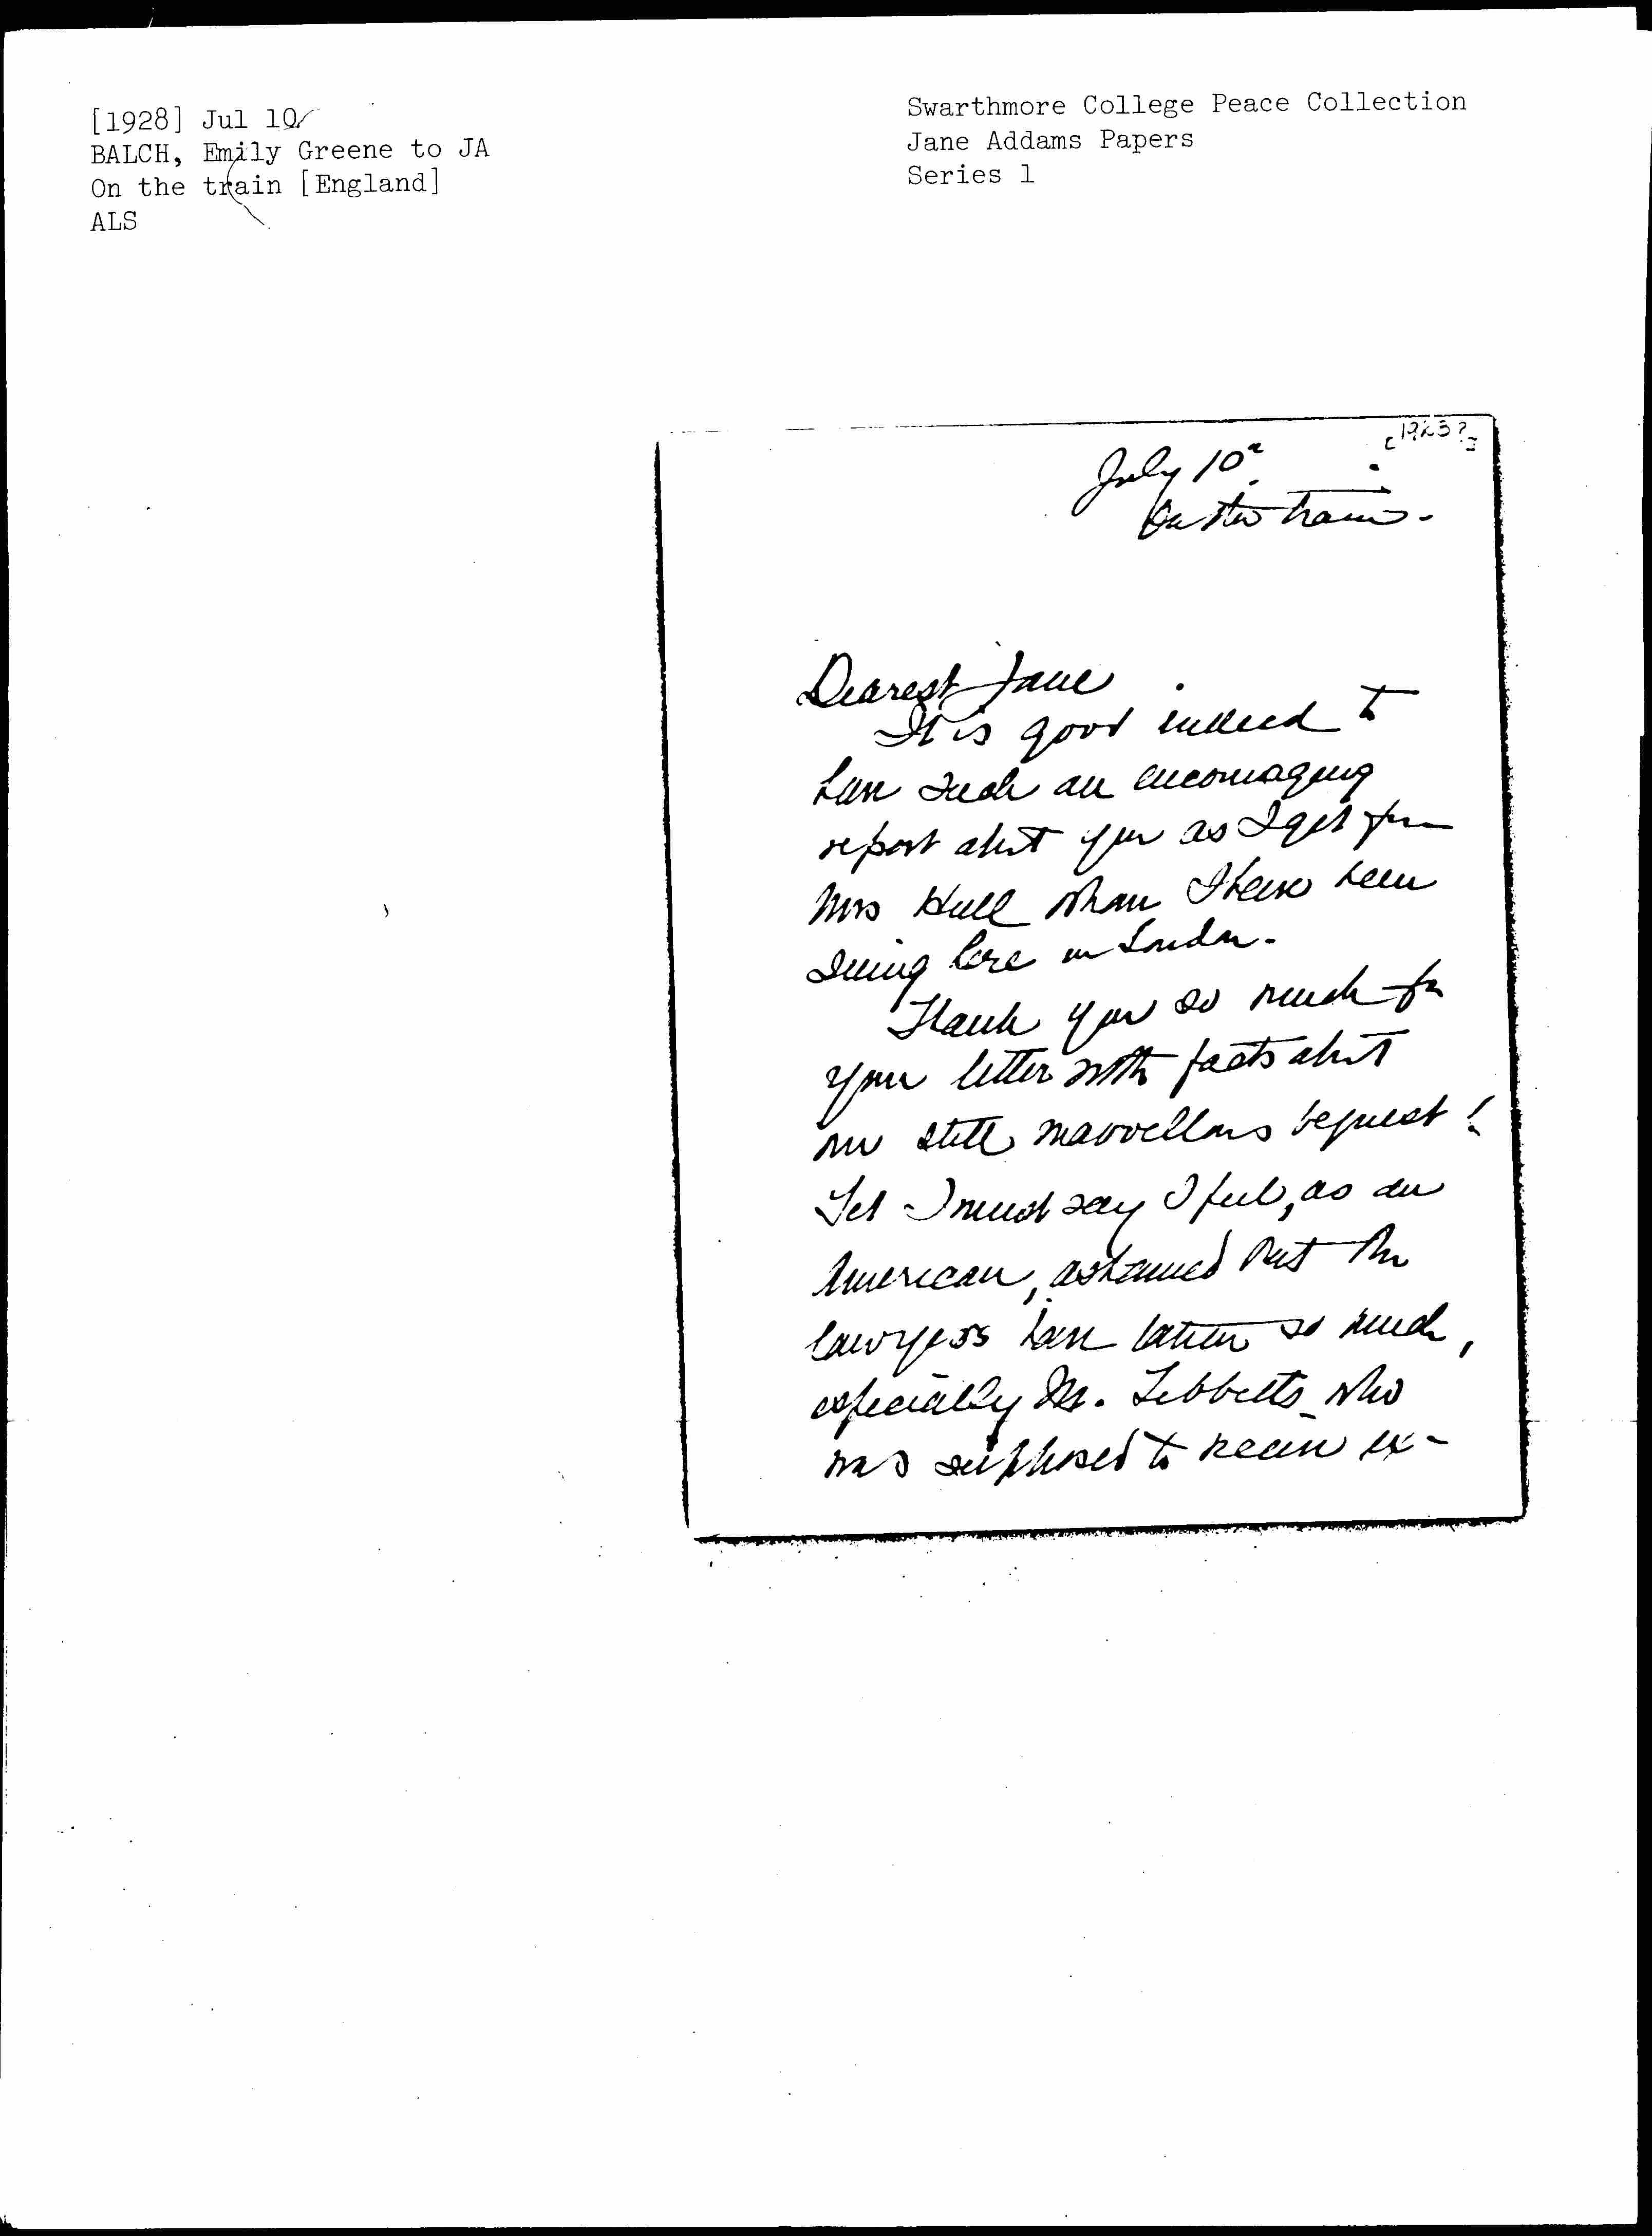 [1928] Jul 10
BALCH, Emily Greene to JA
On the train [England]
ALS
Swarthmore College Peace Collection
Jane Addams Papers
Series 1
[1925?]
July 10
On the train.
Dearest Jane
It is good indeed to
have such an encouraging
report about you as I get from
Mrs Hull whom I have been
seeing here in London.
Thank you so much for
your letter with facts about
our still marvellous bequest!
Yet I must say I feel, as an
American, ashamed that the
lawyers have taken so much,
especially Mr. Tebbetts who
was supposed to receive ex-